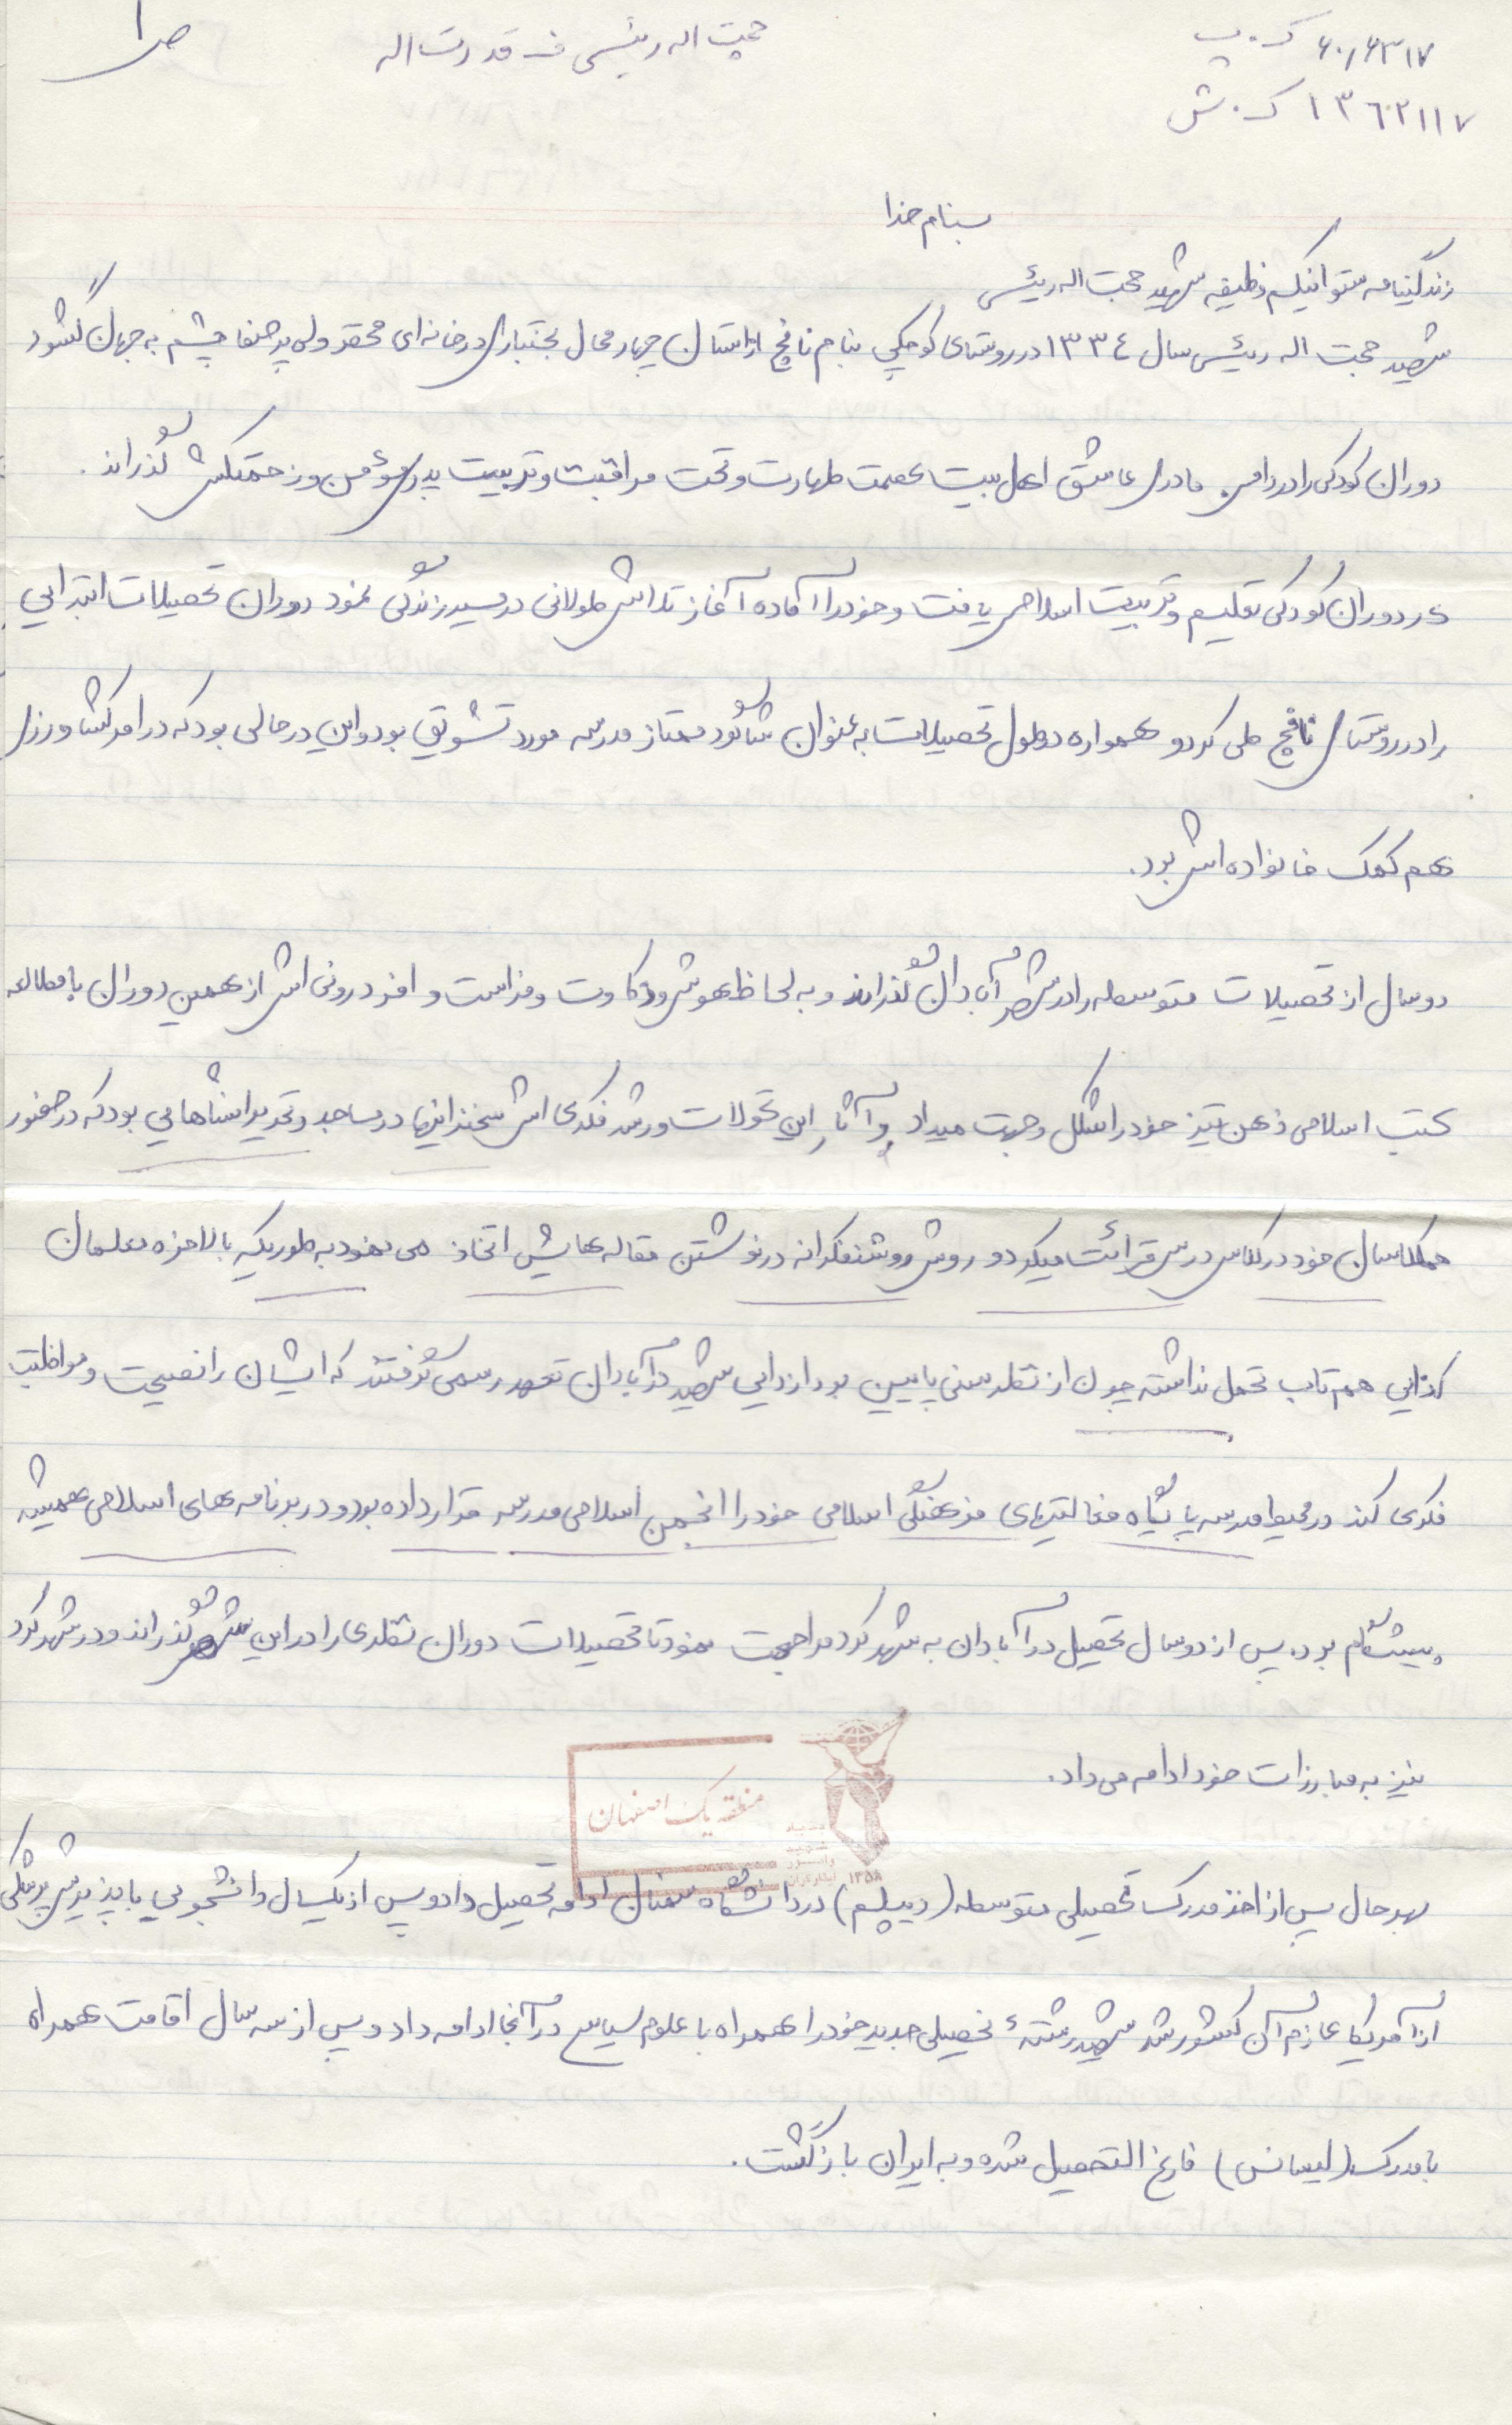 ص ۱
حجت اله رئیسی ف قدرت اله
۶۰/۶۳۱۷ ک.پ
۱۳۶۲۱۱۷ ک.ش
بنام خدا
زندگینامه ستوانیکم وظیفه شهید حجت اله رئیسی
شهید حجت اله رئیسی سال ۱۳۳۴ در روستای کوچکی بنام نافچ از استان چهارمحال بختیاری در خانه‌ای محقر ولی پرصفا چشم به جهان گشود
دوران کودکی را در دامن مادری عاشق اهل بیت عصمت طهارت و تحت مراقبت و تربیت پدری مؤمن و زحمتکش گذراند.
در دوران کودکی تعلیم و تربیت اسلامی یافت و خود را آماده آغاز تلاش طولانی در مسیر زندگی نمود دوران تحصیلات ابتدایی
را در روستای نافچ طی کرد و همواره در طول تحصیلات به عنوان شاگرد ممتاز مدرسه مورد تشویق بود و این در حالی بود که در امر کشاورزی
هم کمک خانواده اش بود.
دو سال از تحصیلات متوسطه را در شهر آبادان گذراند و به لحاظ هوش و ذکاوت و فراست و افر درونی اش از همین دوران با مطالعه
کتب اسلامی ذهن تیز خود را شکل و جهت میداد و آثار این تحولات و رشد فکری اش سخنرانیها در مساجد و تحریر انشاهایی بود که در حضور
همکلاسان خود در کلاس درس قرائت میکرد و روش روشنفکرانه در نوشتن مقاله هایش اتخاذ می نمود به طوریکه بالاخره معلمان
کذایی هم تاب تحمل نداشته چون از نظر سنی پایین بود از دایی شهید در آبادان تعهد رسمی گرفتند که ایشان را نصیحت و مواظبت
فکری کند در محیط مدرسه پایگاه فعالتیهای فرهنگی اسلامی خود را انجمن اسلامی مدرسه قرار داده بود و در برنامه های اسلامی همیشه
پیشگام بود. پس از دو سال تحصیل در آبادان به شهرکرد مراجعت نمود تا تحصیلات دوران نظری را در این شهر گذراند و در شهرکرد
نیز به مبارزات خود ادامه می داد.
منطقه یک اصفهان
بنیاد شهید
۱۳۵۸
بهرحال پس از اخذ مدرک تحصیلی متوسطه (دیپلم) در دانشگاه سمنان ادامه تحصیل داد و پس از یکسال دانشجویی با پذیرش پزشکی
از آمریکا عازم آن کشور شد شهید رشتهٔ تحصیلی جدید خود را همراه با علوم سیاسی در آنجا ادامه داد و پس از سه سال اقامت همراه
با مدرک (لیسانس) فارغ التحصیل شده و به ایران بازگشت.